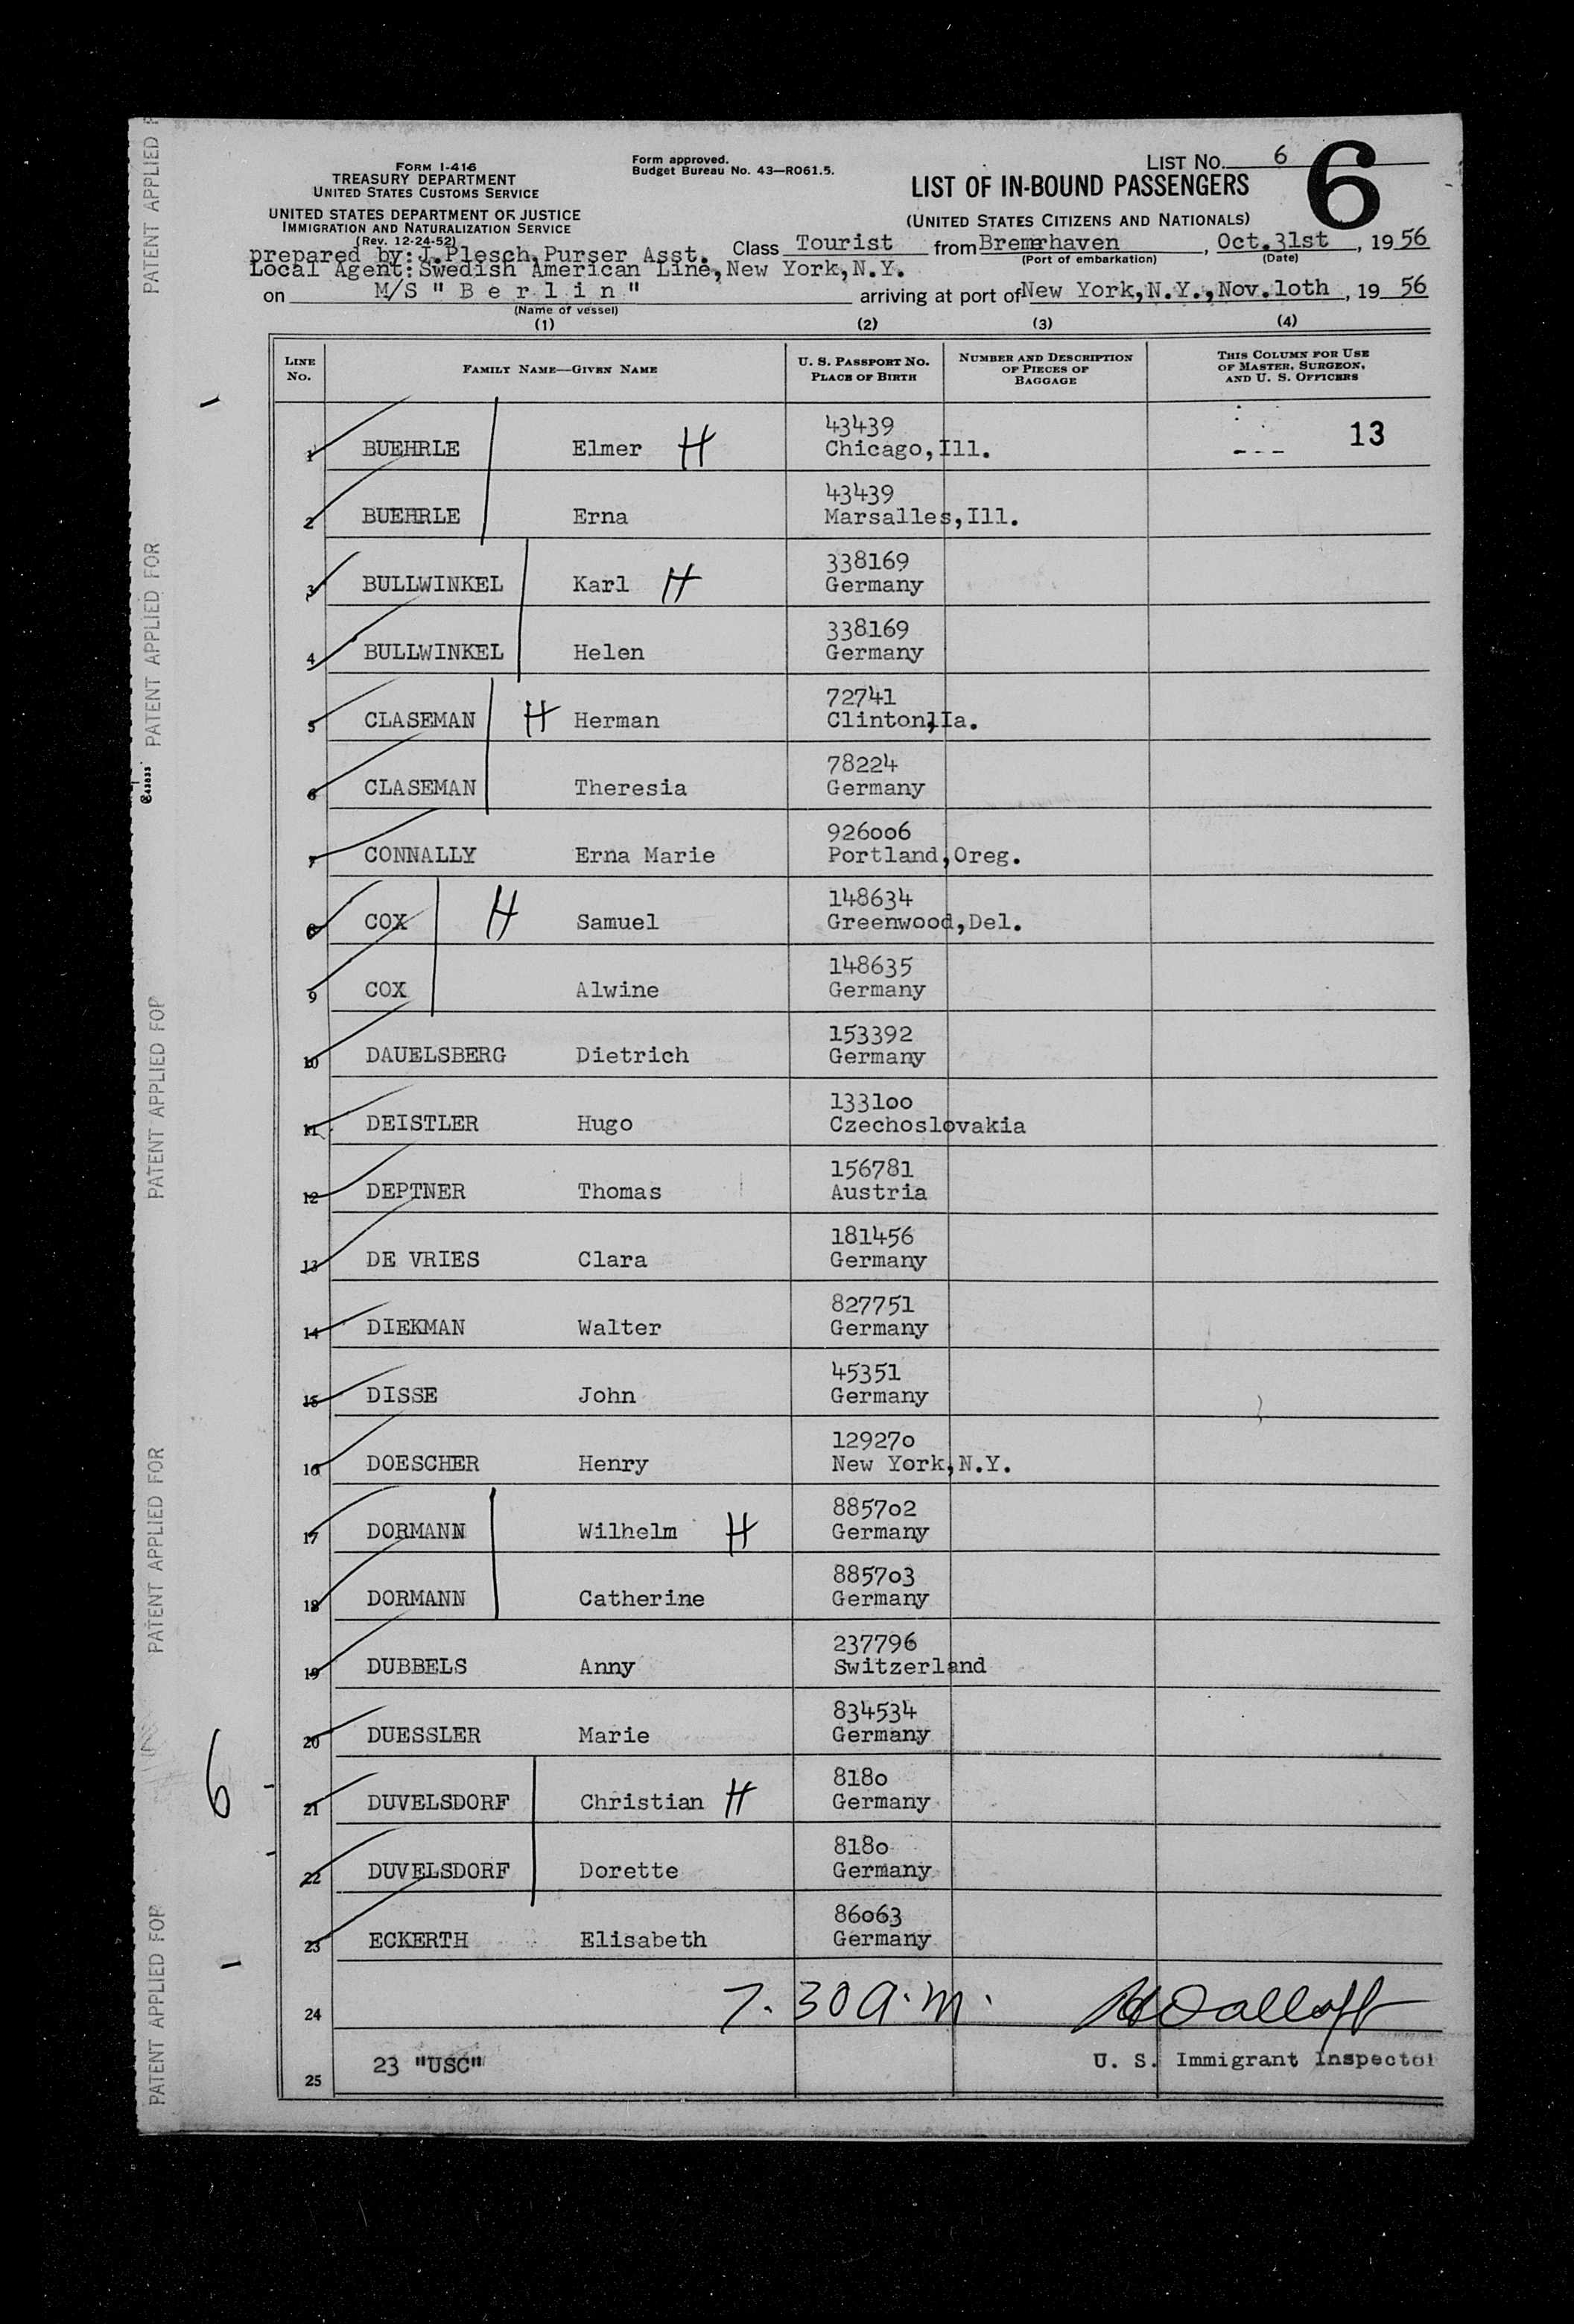 FORM I-416
TREASURY DEPARTMENT
UNITED STATES CUSTOMS SERVICE
UNITED STATES DEPARTMENT OF JUSTICE
IMMIGRATION AND NATURALIZATION SERVICE
(Rev. 12-24-52)
Form approved.
Budget Bureau No. 43—RO61.5.
LIST NO. 6
6
LIST OF IN-BOUND PASSENGERS
(UNITED STATES CITIZENS AND NATIONALS)
prepared by: J.Plesch,Purser Asst. Class Tourist from Bremerhaven, Oct.31st, 1956
(Port of embarkation) (Date)
Local Agent: Swedish American Line, New York, N.Y.
on M/S " B e r l i n " arriving at port of New York,N.Y.,Nov.1oth, 19 56
(Name of vessel)
(1) (2) (3) (4)
LINE No. FAMILY NAME—GIVEN NAME U. S. PASSPORT NO. PLACE OF BIRTH NUMBER AND DESCRIPTION OF PIECES OF BAGGAGE THIS COLUMN FOR USE OF MASTER, SURGEON, AND U. S. OFFICERS
43439 13
1 BUEHRLE Elmer H Chicago,Ill.
43439
2 BUEHRLE Erna Marsalles,Ill.
338169
3 BULLWINKEL Karl H Germany
338169
4 BULLWINKEL Helen Germany
72741
5 CLASEMAN H Herman Clinton,Ia.
78224
6 CLASEMAN Theresia Germany
926oo6
7 CONNALLY Erna Marie Portland,Oreg.
148634
8 COX H Samuel Greenwood,Del.
148635
9 COX Alwine Germany
153392
10 DAUELSBERG Dietrich Germany
1331oo
11 DEISTLER Hugo Czechoslovakia
156781
12 DEPTNER Thomas Austria
181456
13 DE VRIES Clara Germany
827751
14 DIEKMAN Walter Germany
45351
15 DISSE John Germany
12927o
16 DOESCHER Henry New York,N.Y.
8857o2
17 DORMANN Wilhelm H Germany
8857o3
18 DORMANN Catherine Germany
237796
19 DUBBELS Anny Switzerland
834534
20 DUESSLER Marie Germany
818o
21 DUVELSDORF Christian H Germany
818o
22 DUVELSDORF Dorette Germany
86o63
23 ECKERTH Elisabeth Germany
24 7.30 a.m.
25 23 "USC" U. S. Immigrant Inspector
6
PATENT APPLIED FOR
PATENT APPLIED FOR
PATENT APPLIED FOR
PATENT APPLIED FOR
PATENT APPLIED FOR